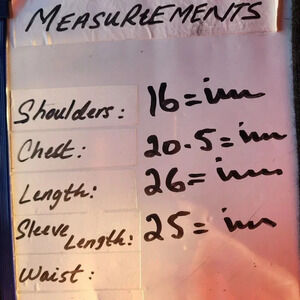 MEASUREMENTS
Shoulders: 16=inn
Chest: 20.5=inn
Length: 26=inn
Sleeve Length: 25=inn
Waist: